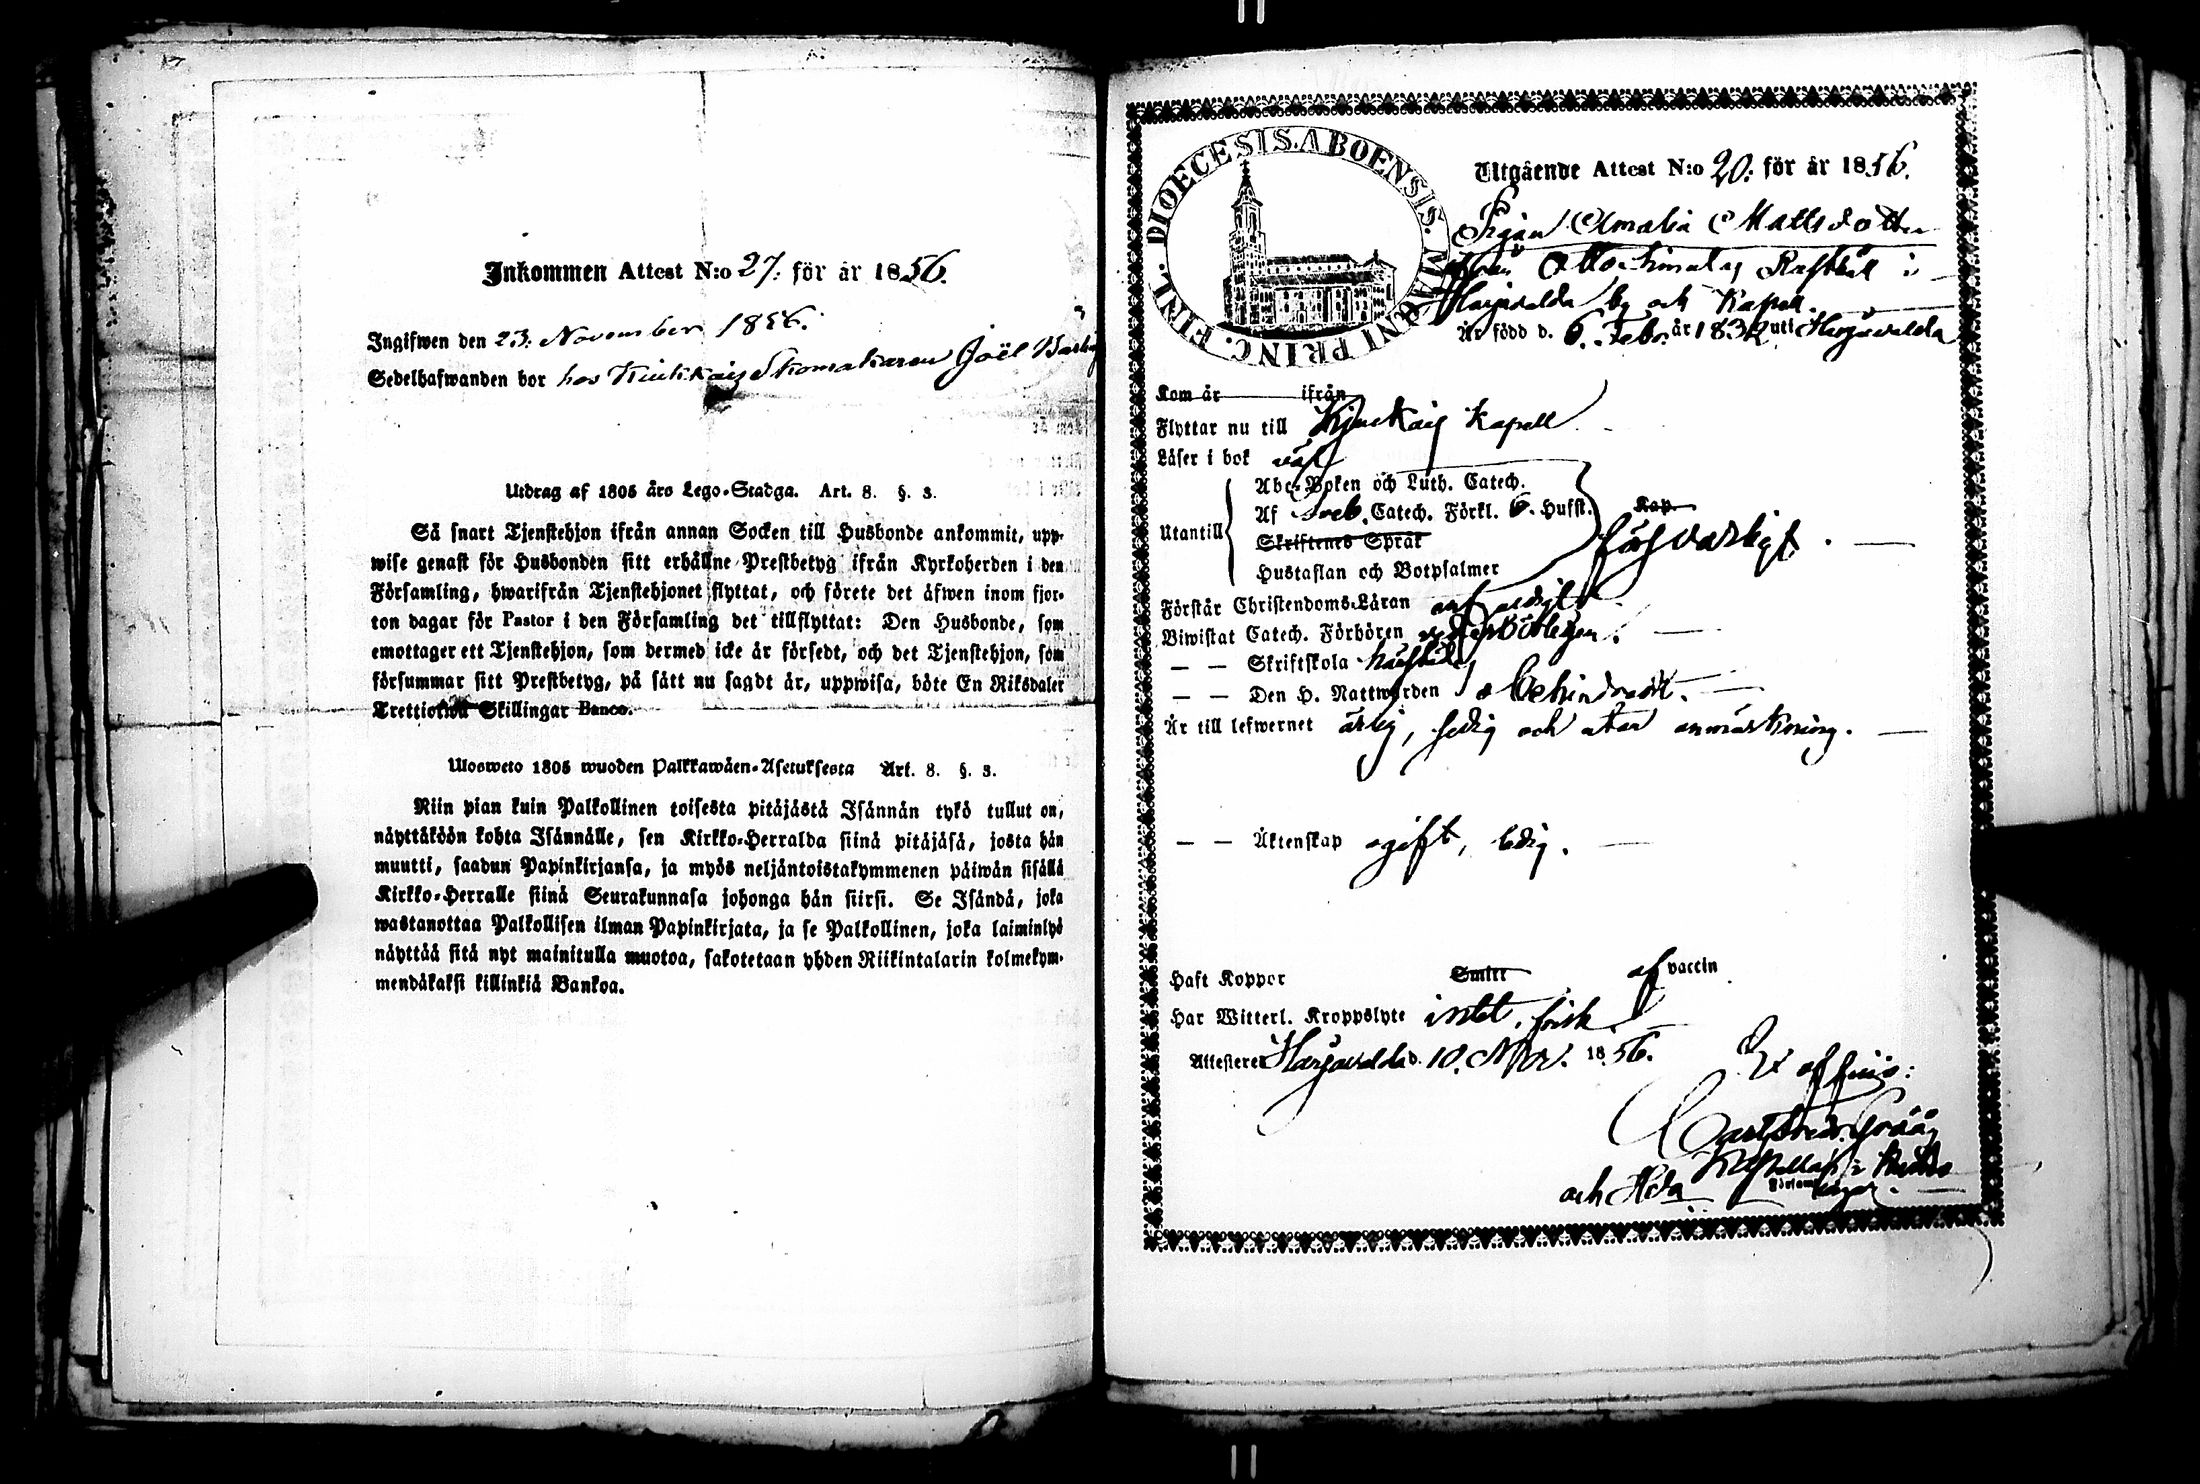 Inkommen Attest N:o 27. för år 1856.
Ingifwen den 23. November 1856.
Sedelhafwanden bor hos Kiukkais Skomakaren Joël
Utdrag af 1805 års Lego-Stadga. Art. 8. §. 3.
Så snart Tjenstehjon ifrån annan Socken till Husbonde ankommit, upp-
wise genast för Husbonden sitt erhållne Prestbetyg ifrån Kyrkoherden i den
Församling, hwarifrån Tjenstehjonet flyttat, och förete det äfwen inom fjor-
ton dagar för Pastor i den Församling det tillflyttat: Den Husbonde, som
emottager ett Tjenstehjon, som dermed icke är försedt, och det Tjenstehjon, som
försummar sitt Prestbetyg, på sätt nu sagdt är, uppwisa, böte En Riksdaler
Trettiotwå Skillingar Banco.
Ulosweto 1805 wuoden Palkkawäen-Asetuksesta Art. 8. §. 3.
Niin pian kuin Palkollinen toisesta pitäjästä Isännän tykö tullut on,
näyttäköön kohta Isännälle, sen Kirkko-Herralda siinä pitäjäsä, josta hän
muutti, saadun Papinkirjansa, ja myös neljäntoistakymmenen päiwän sisällä
Kirkko-Herralle siinä Seurakunnasa johonga hän siirsi. Se Isändä, joka
wastanottaa Palkollisen ilman Papinkirjata, ja se Palkollinen, joka laiminlyö
näyttää sitä nyt mainitulla muotoa, sakotetaan yhden Riikintalarin kolmekym-
mendäkaksi killinkiä Bankoa.
FINL. DIOECESIS. ABOENSIS. MAGNI PRINC.
Utgående Attest N:o 20. för år 1856.
Pigan Amalia Mattsdotter
ifrån Rusthåll i
Harjavalda by och Kapell.
Är född d. 6. Febr. år 1832 uti Harjavalda
Kom år ifrån
Flyttar nu till Kjukais Kapell
Läser i bok väl
Abc-Boken och Luth. Catech.
Utantill Af Sveb. Catech. Förkl. 6. Hufst. Kap. försvarligt.
Skriftenes Språk
Hustaflan och Botpsalmer
Förstår Christendoms-Läran enfaldigt
Biwistat Catech. Förhören vederbörligen.
— — Skriftskola
— — Den H. Nattwarden obehindradt.
Är till lefwernet ärlig, sedig och utan anmärkning.
— — Äktenskap ogift, ledig.
Haft Koppor Smitt af vaccin
Har Witterl. Kroppslyte intet, frisk.
Attesterer Harjavalda d. 10. Nov. 1856.
Ex officio:
Kapellan i
och Hda Församl.